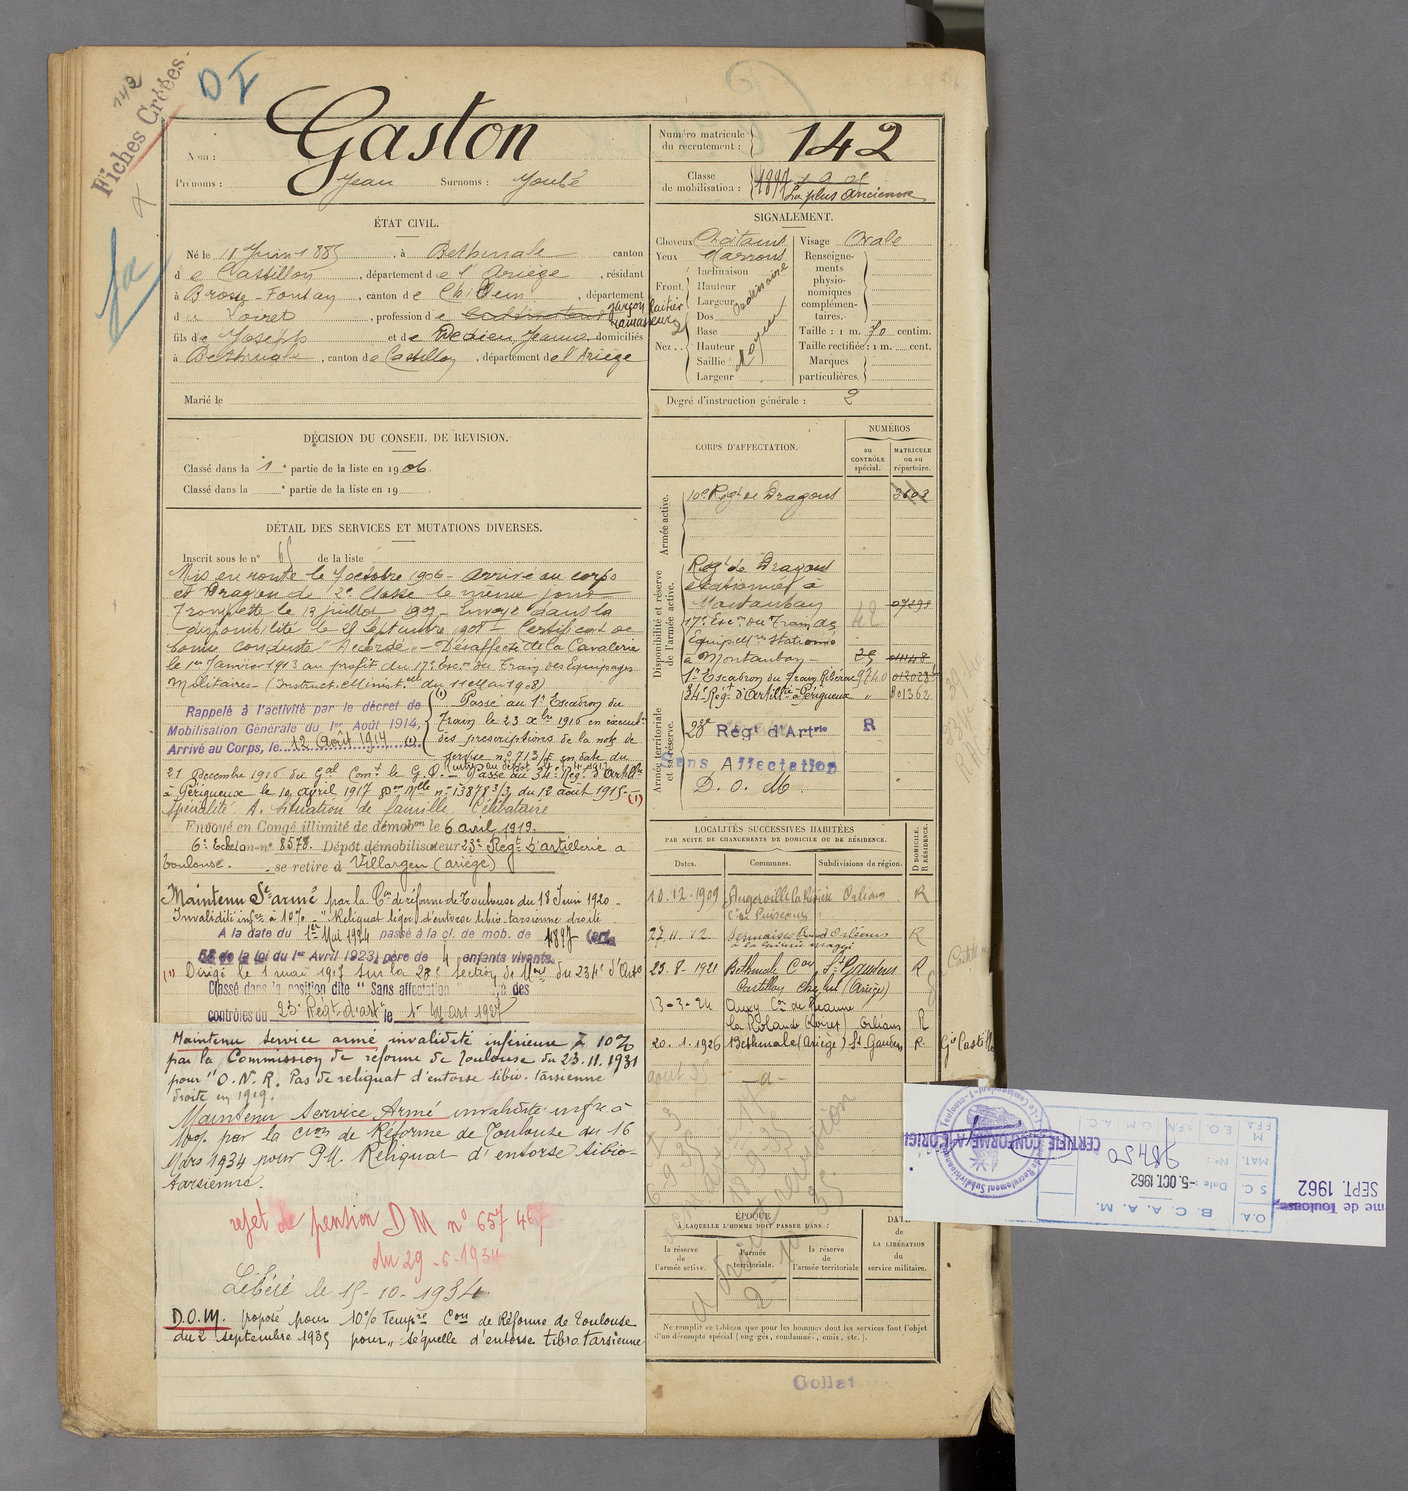 142
Fiches Créées
D I
Nom :
Gaston
Prénoms : Jean Surnoms : Joubé
Numéro matricule du recrutement : 142
Classe de mobilisation : 1897
La plus ancienne
ÉTAT CIVIL.
Né le 11 Juin 1885, à Bethmale canton
de Castillon, département de l'Ariège, résidant
à Brosse-Fontay, canton de , département
du Loiret, profession de garçon laitier
ramasseur
fils de Joseph et de Dedieu Jeanne domiciliés
à Bethmale, canton de Castillon, département de l'Ariège
Marié le
SIGNALEMENT.
Cheveux Châtains Visage Ovale
Yeux Marrons
Front. Inclinaison Hauteur Largeur
Nez . . Dos Base Hauteur Saillie Largeur
moyen
Renseignements physionomiques complémentaires.
Taille : 1 m. 70 centim.
Taille rectifiée : 1 m. cent.
Marques particulières.
Degré d'instruction générale : 2
DÉCISION DU CONSEIL DE REVISION.
Classé dans la 1e partie de la liste en 1906.
Classé dans la e partie de la liste en 19
DÉTAIL DES SERVICES ET MUTATIONS DIVERSES.
Inscrit sous le n° 65 de la liste
Mis en route le 7 octobre 1906 - arrivé au corps
et Dragon de 2e Classe le même jour
Trompette le 13 juillet 1907 - Envoyé dans la
disponibilité le 25 septembre 1908 - Certificat de
bonne conduite "Accordé" - Désaffecté de la Cavalerie
le 1er Janvier 1913 au profit du 17e Escon du Train des Equipages
Militaires - (Instruct. Ministelle du 11 Mai 1908)
Rappelé à l'activité par le décret de
Mobilisation Générale du 1er Août 1914,
Arrivé au Corps, le 12 Août 1914 (1).
(1) Passé au 1er Escadron du
Train le 23 Xbre 1916 en exécution
des prescriptions de la note de
service n° 713/E en date du
21 Decembre 1916 du Gal Comt le G.Q. - Passé au 34e Rég. d'Artillie
à Périgueux le 10 avril 1917 Don Mlle n° 13878 3/3 du 12 août 1915 - (1)
Spécialité A. Situation de famille Célibataire
Envoyé en Congé illimité de démobon le 6 avril 1919.
6e Echelon n° 8578. Dépôt démobilisateur 23e Régt d'artillerie à
Toulouse. se retire à Villargen (Ariège)
Maintenu Sce armé par la Con de réforme de Toulouse du 18 Juin 1920 -
Invalidité infre à 10% - "Reliquat léger d'entorse tibio-tarsienne droite
A la date du 1er Mai 1924 passé à la cl. de mob. de 1897 (art.
58 de la loi du 1er Avril 1923) père de 4 enfants vivants.
(1) Dirigé le 1 mai 1917 sur la 28e Section de Mons du 234e d'Artie
Classé dans la position dite "Sans affectation" des
contrôles du 23e Régt d'arte le 1er Mars 1927
Maintenu service armé invalidité inférieure à 10%
par la Commission de réforme de Toulouse du 23.11.1931
pour "O.N.R. Pas de reliquat d'entorse tibio-tarsienne
droite en 1919.
Maintenu Service Armé invalidité infre à
10% par la Cion de Réforme de Toulouse du 16
Mars 1934 pour P.M. Reliquat d'entorse tibio-
tarsienne.
rejet de pension DM n° 657 46
du 29-6-1934
Libéré le 15-10-1934
D.O.M. proposé pour 10% Tempre Con de Réforme de Toulouse
du 2 septembre 1935 pour "séquelle d'entorse tibio tarsienne
CORPS D'AFFECTATION.
NUMÉROS
au CONTRÔLE spécial.
MATRICULE ou au répertoire.
Armée active.
10e Régt de Dragons 3602
Disponibilité et réserve de l'armée active.
Régt de Dragons
stationné à
Montauban
17e Escon du Train des
Equip. Mres stationné
à Montauban -
1er Escadron du Train 9740
34e Régt d'Artillie à Périgueux " 801362
Armée territoriale et sa réserve.
28e Régt d'Artrie R
Sans Affectation
D. O. M.
LOCALITÉS SUCCESSIVES HABITÉES
PAR SUITE DE CHANGEMENTS DE DOMICILE OU DE RÉSIDENCE.
D DOMICILE. R RÉSIDENCE.
Dates. Communes. Subdivisions de région.
10.12.1909 Augerville la Rivière Orléans R
Con Puiseaux
27.11.12 Sermaises Orléans R
23-8-1921 Bethmale Con St Gaudens R
Castillon (Ariège)
13-3-24 Auxy Con de Beaune
la Rolande (Loiret) Orléans R
20.1.1926 Bethmale (Ariège) St Gaudens R
ÉPOQUE
À LAQUELLE L'HOMME DOIT PASSER DANS :
la réserve de l'armée active.
l'armée territoriale.
la réserve de l'armée territoriale
DATE de LA LIBÉRATION du service militaire.
Ne remplir ce tableau que pour les hommes dont les services font l'objet
d'un décompte spécial (engagés, condamnés, omis, etc.).
Collat
CERTIFIÉ CONFORME A L'ORIGI
de Recrutement Subdivisionnaire
B. C. A. A. M.
Date : -5. OCT. 1962
N° : 98450
O.A. S.C. MAT. M FFA
E.O. A.F.N. C.M.A.C.
me de Toulouse
SEPT. 1962